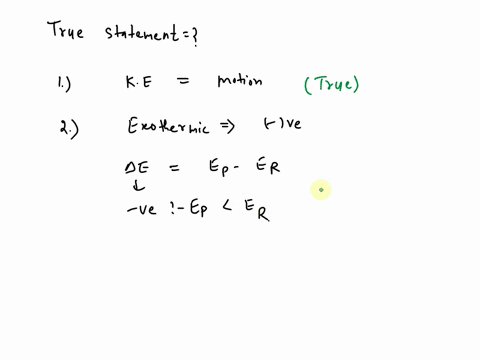 True statement = ?
1.) K.E = motion (True)
2.) Exothermic ⇒ (-)ve
ΔE = Ep - ER
↓
-ve :- Ep < ER